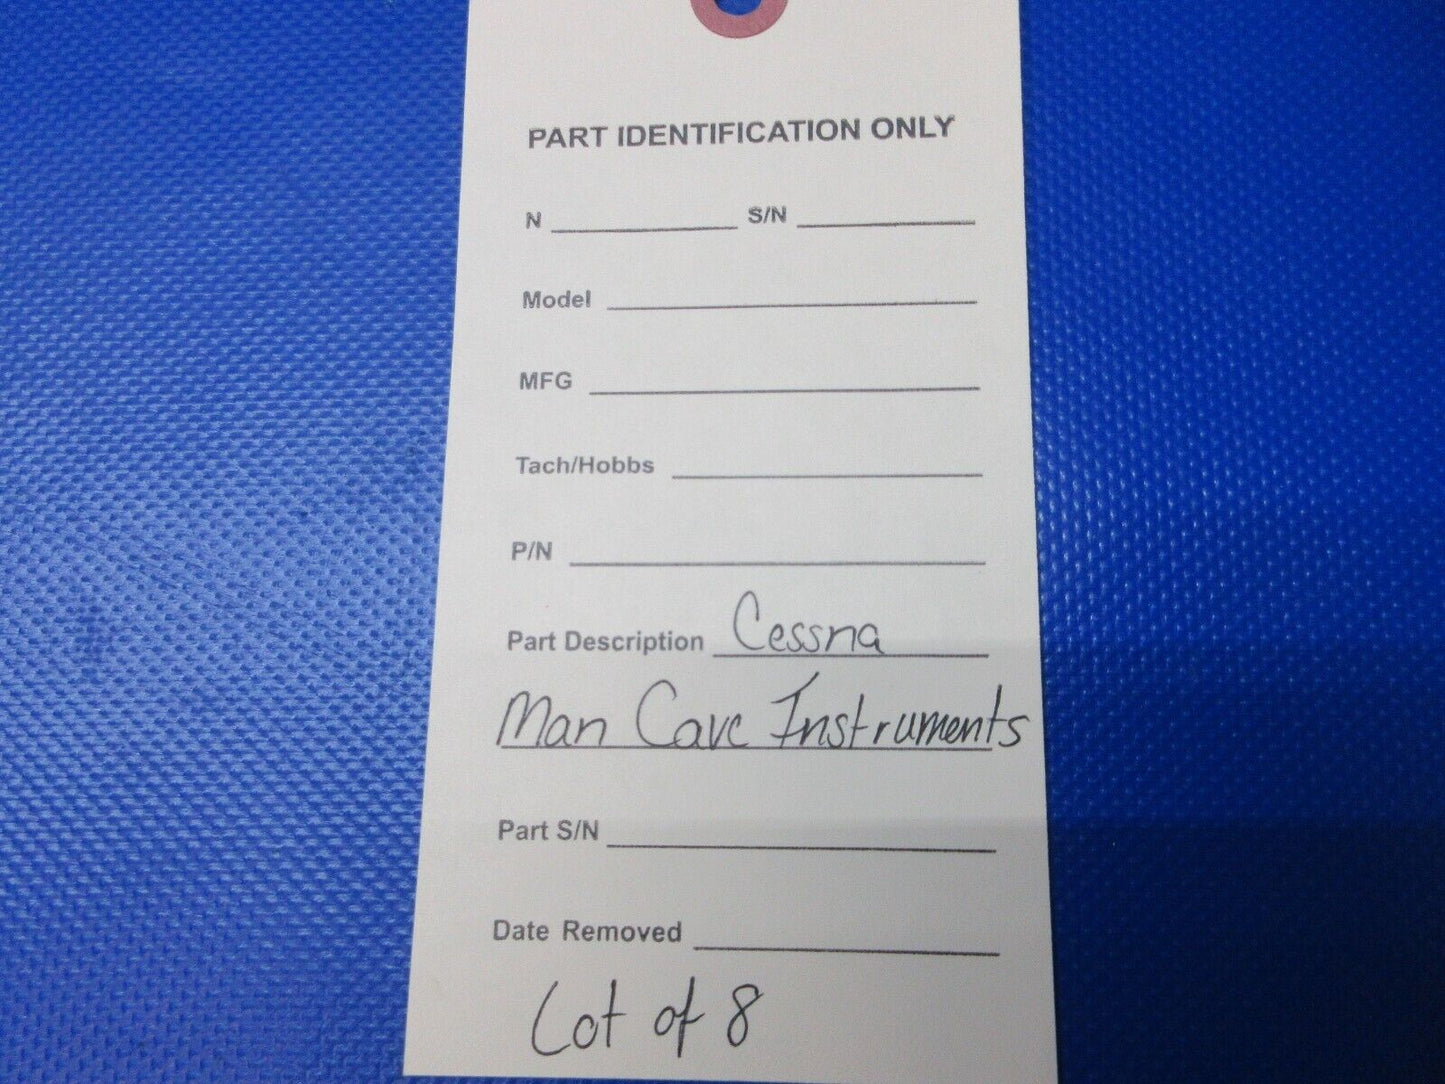 PART IDENTIFICATION ONLY
N S/N
Model
MFG
Tach/Hobbs
P/N
Part Description Cessna
Man Cave Instruments
Part S/N
Date Removed
Lot of 8